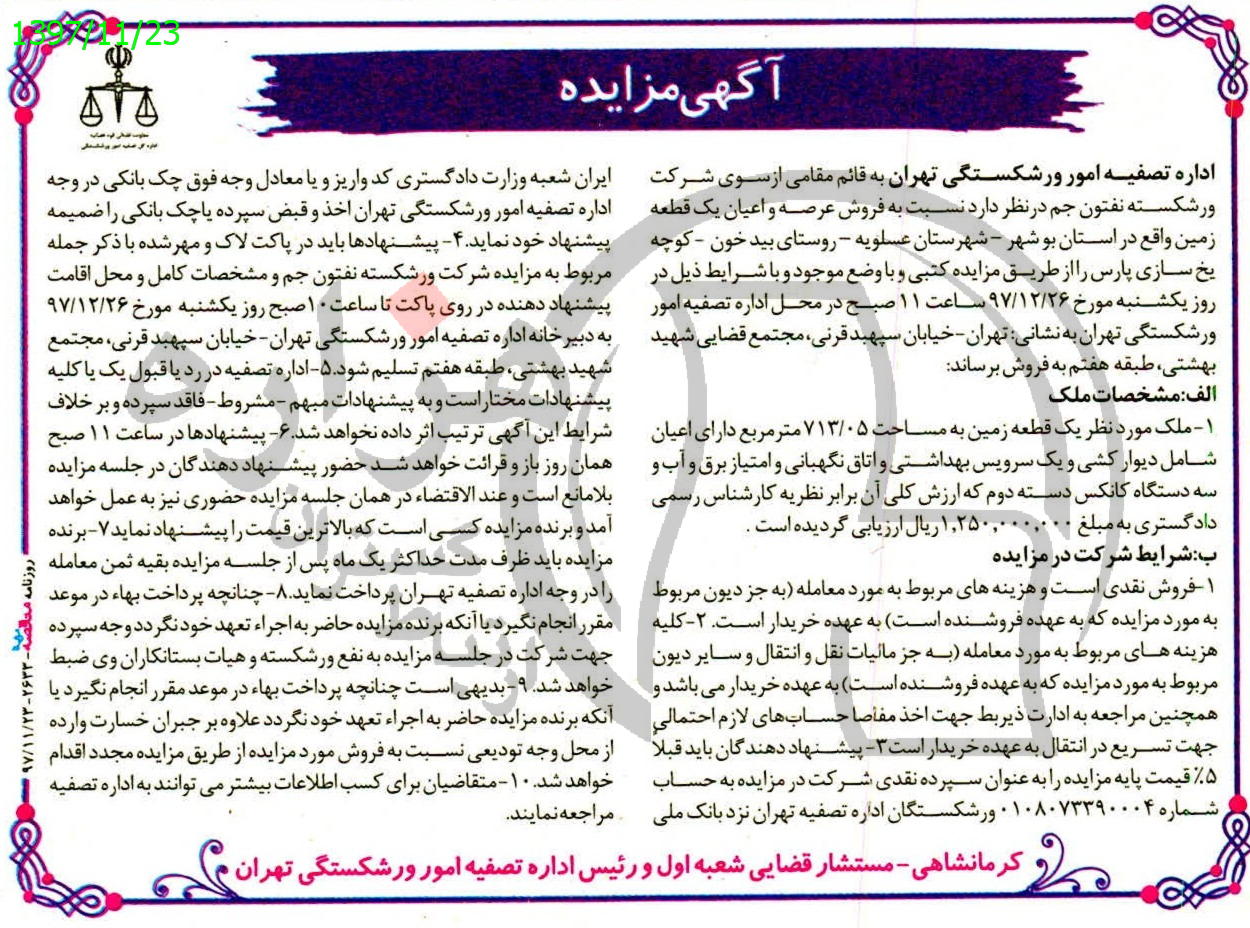 1397/11/23
آگهی مزایده
معاونت قضائی قوه قضائیه
اداره کل تصفیه امور ورشکستگی
اداره تصفیه امور ورشکستگی تهران به قائم مقامی از سوی شرکت
ورشکسته نفتون جم در نظر دارد نسبت به فروش عرصه و اعیان یک قطعه
زمین واقع در استان بوشهر – شهرستان عسلویه – روستای بید خون - کوچه
یخ سازی پارس را از طریق مزایده کتبی و با وضع موجود و با شرایط ذیل در
روز یکشنبه مورخ ۹۷/۱۲/۲۶ ساعت ۱۱ صبح در محل اداره تصفیه امور
ورشکستگی تهران به نشانی: تهران-خیابان سپهبد قرنی، مجتمع قضایی شهید
بهشتی، طبقه هفتم به فروش برساند:
الف: مشخصات ملک
۱-ملک مورد نظر یک قطعه زمین به مساحت ۷۱۳/۰۵ مترمربع دارای اعیان
شامل دیوار کشی و یک سرویس بهداشتی و اتاق نگهبانی و امتیاز برق و آب و
سه دستگاه کانکس دسته دوم که ارزش کلی آن برابر نظریه کارشناس رسمی
دادگستری به مبلغ ۱،۲۵۰،۰۰۰،۰۰۰ ریال ارزیابی گردیده است .
ب: شرایط شرکت در مزایده
۱-فروش نقدی است و هزینه های مربوط به مورد معامله (به جز دیون مربوط
به مورد مزایده که به عهده فروشنده است) به عهده خریدار است. ۲-کلیه
هزینه های مربوط به مورد معامله (به جز مالیات نقل و انتقال و سایر دیون
مربوط به مورد مزایده که به عهده فروشنده است) به عهده خریدار می باشد و
همچنین مراجعه به ادارت ذیربط جهت اخذ مفاصا حساب‌های لازم احتمالی
جهت تسریع در انتقال به عهده خریدار است۳-پیشنهاد دهندگان باید قبلاً
۵٪ قیمت پایه مزایده را به عنوان سپرده نقدی شرکت در مزایده به حساب
شماره ۰۱۰۸۰۷۳۳۹۰۰۰۴ ورشکستگان اداره تصفیه تهران نزد بانک ملی
ایران شعبه وزارت دادگستری کد واریز و یا معادل وجه فوق چک بانکی در وجه
اداره تصفیه امور ورشکستگی تهران اخذ و قبض سپرده یا چک بانکی را ضمیمه
پیشنهاد خود نماید.۴- پیشنهادها باید در پاکت لاک و مهر شده با ذکر جمله
مربوط به مزایده شرکت ورشکسته نفتون جم و مشخصات کامل و محل اقامت
پیشنهاد دهنده در روی پاکت تا ساعت ۱۰صبح روز یکشنبه مورخ ۹۷/۱۲/۲۶
به دبیرخانه اداره تصفیه امور ورشکستگی تهران-خیابان سپهبد قرنی، مجتمع
شهید بهشتی، طبقه هفتم تسلیم شود.۵-اداره تصفیه در رد یا قبول یک یا کلیه
پیشنهادات مختار است و به پیشنهادات مبهم -مشروط-فاقد سپرده و بر خلاف
شرایط این آگهی ترتیب اثر داده نخواهد شد.۶- پیشنهادها در ساعت ۱۱ صبح
همان روز باز و قرائت خواهد شد حضور پیشنهاد دهندگان در جلسه مزایده
بلامانع است و عند الاقتضاء در همان جلسه مزایده حضوری نیز به عمل خواهد
آمد و برنده مزایده کسی است که بالاترین قیمت را پیشنهاد نماید ۷-برنده
مزایده باید ظرف مدت حداکثر یک ماه پس از جلسه مزایده بقیه ثمن معامله
را در وجه اداره تصفیه تهران پرداخت نماید.۸-چنانچه پرداخت بهاء در موعد
مقرر انجام نگیرد یا آنکه برنده مزایده حاضر به اجراء تعهد خود نگردد وجه سپرده
جهت شرکت در جلسه مزایده به نفع ورشکسته و هیات بستانکاران وی ضبط
خواهد شد. ۹-بدیهی است چنانچه پرداخت بهاء در موعد مقرر انجام نگیرد یا
آنکه برنده مزایده حاضر به اجراء تعهد خود نگردد علاوه بر جبران خسارت وارده
از محل وجه تودیعی نسبت به فروش مورد مزایده از طریق مزایده مجدد اقدام
خواهد شد. ۱۰-متقاضیان برای کسب اطلاعات بیشتر می توانند به اداره تصفیه
مراجعه نمایند.
کرمانشاهی - مستشار قضایی شعبه اول و رئیس اداره تصفیه امور ورشکستگی تهران
روزنامه مناقصه - ۲۶۳۳ - ۹۷/۱۱/۲۳
هزاره